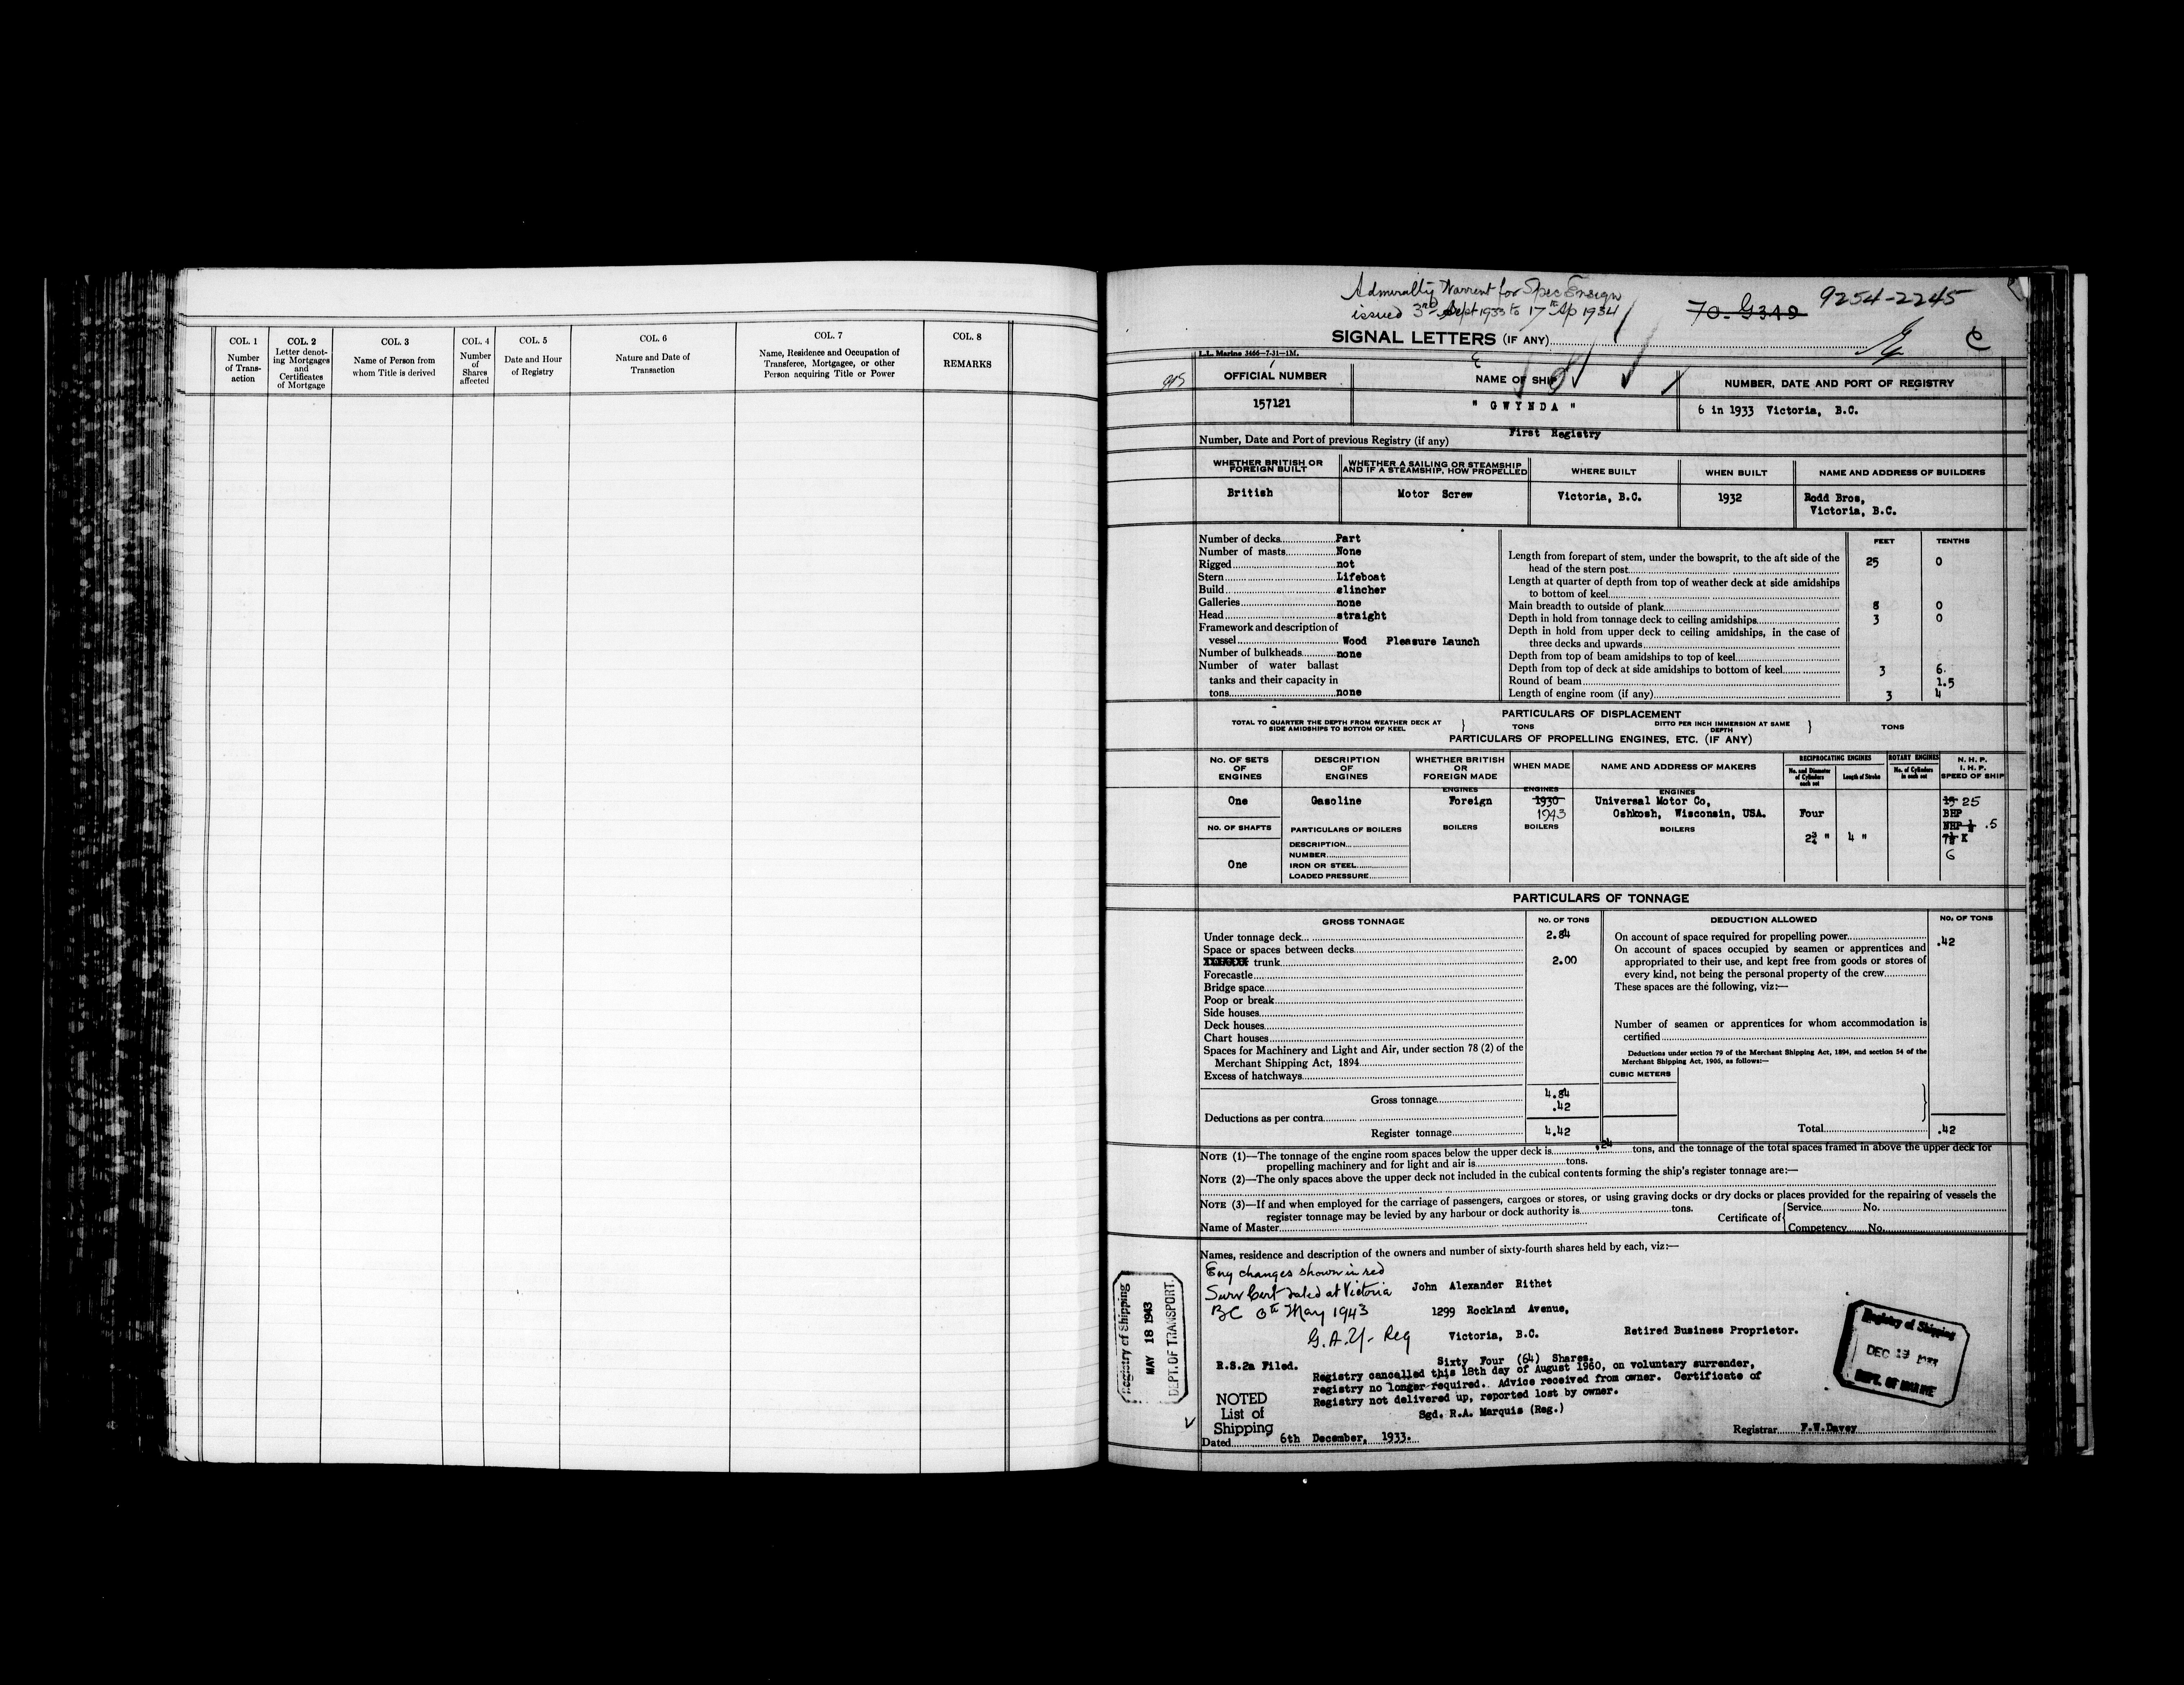 COL. 1
Number
of Trans-
action
COL. 2
Letter denot-
ing Mortgages
and
Certificates
of Mortgage
COL. 3
Name of Person from
whom Title is derived
COL. 4
Number
of
Shares
affected
COL. 5
Date and Hour
of Registry
COL. 6
Nature and Date of
Transaction
COL. 7
Name, Residence and Occupation of
Transferee, Mortgagee, or other
Person acquiring Title or Power
COL. 8
REMARKS
Admiralty Warrent for Spec Ensign
issued 3rd Sept 1933 to 17th Ap 1934
70-G349
9254-2245
SIGNAL LETTERS (IF ANY)
L.L. Marine 3466-7-31-1M.
OFFICIAL NUMBER
NAME OF SHIP
NUMBER, DATE AND PORT OF REGISTRY
157121
" GWYNDA "
6 in 1933 Victoria, B.C.
Number, Date and Port of previous Registry (if any) First Registry
WHETHER BRITISH OR
FOREIGN BUILT
WHETHER A SAILING OR STEAMSHIP
AND IF A STEAMSHIP, HOW PROPELLED
WHERE BUILT
WHEN BUILT
NAME AND ADDRESS OF BUILDERS
British
Motor Screw
Victoria, B.C.
1932
Rodd Bros,
Victoria, B.C.
Number of decks Part
Number of masts None
Rigged not
Stern Lifeboat
Build clincher
Galleries none
Head straight
Framework and description of
vessel Wood Pleasure Launch
Number of bulkheads none
Number of water ballast
tanks and their capacity in
tons none
FEET TENTHS
Length from forepart of stem, under the bowsprit, to the aft side of the
head of the stern post 25 0
Length at quarter of depth from top of weather deck at side amidships
to bottom of keel
Main breadth to outside of plank 8 0
Depth in hold from tonnage deck to ceiling amidships 3 0
Depth in hold from upper deck to ceiling amidships, in the case of
three decks and upwards
Depth from top of beam amidships to top of keel
Depth from top of deck at side amidships to bottom of keel 3 6
Round of beam 1.5
Length of engine room (if any) 3 4
PARTICULARS OF DISPLACEMENT
TOTAL TO QUARTER THE DEPTH FROM WEATHER DECK AT
SIDE AMIDSHIPS TO BOTTOM OF KEEL
} TONS
DITTO PER INCH IMMERSION AT SAME
DEPTH
} TONS
PARTICULARS OF PROPELLING ENGINES, ETC. (IF ANY)
No. OF SETS
OF
ENGINES
DESCRIPTION
OF
ENGINES
WHETHER BRITISH
OR
FOREIGN MADE
WHEN MADE
NAME AND ADDRESS OF MAKERS
RECIPROCATING ENGINES
No. and Diameter
of Cylinders
each set
Length of Stroke
ROTARY ENGINES
No. of Cylinders
in each set
N. H. P.
I. H. P.
SPEED OF SHIP
One
Gasoline
ENGINES
Foreign
ENGINES
1930
1943
ENGINES
Universal Motor Co,
Oshkosh, Wisconsin, USA.
Four
15 25
BHP
NHP ½ .5
7½ K
6
2¾ "
4 "
NO. OF SHAFTS
One
PARTICULARS OF BOILERS
DESCRIPTION
NUMBER
IRON OR STEEL
LOADED PRESSURE
BOILERS
BOILERS
BOILERS
PARTICULARS OF TONNAGE
GROSS TONNAGE
NO. OF TONS
DEDUCTION ALLOWED
NO. OF TONS
Under tonnage deck 2.84
Space or spaces between decks
trunk 2.00
Forecastle
Bridge space
Poop or break
Side houses
Deck houses
Chart houses
Spaces for Machinery and Light and Air, under section 78 (2) of the
Merchant Shipping Act, 1894
Excess of hatchways
Gross tonnage 4.84
Deductions as per contra .42
Register tonnage 4.42
On account of space required for propelling power .42
On account of spaces occupied by seamen or apprentices and
appropriated to their use, and kept free from goods or stores of
every kind, not being the personal property of the crew
These spaces are the following, viz:—
Number of seamen or apprentices for whom accommodation is
certified
Deductions under section 79 of the Merchant Shipping Act, 1894, and section 54 of the
Merchant Shipping Act, 1906, as follows:—
CUBIC METERS
Total .42
NOTE (1)—The tonnage of the engine room spaces below the upper deck is .24 tons, and the tonnage of the total spaces framed in above the upper deck for
propelling machinery and for light and air is tons.
NOTE (2)—The only spaces above the upper deck not included in the cubical contents forming the ship's register tonnage are:—
NOTE (3)—If and when employed for the carriage of passengers, cargoes or stores, or using graving docks or dry docks or places provided for the repairing of vessels the
register tonnage may be levied by any harbour or dock authority is tons.
Name of Master
Certificate of { Service No.
Competency No.
Names, residence and description of the owners and number of sixty-fourth shares held by each, viz:—
Eng changes shown in red
Surv Cert dated at Victoria
BC 6th May 1943
G.A.Y- Reg
John Alexander Rithet
1299 Rockland Avenue,
Victoria, B.C. Retired Business Proprietor.
Sixty Four (64) Shares.
R.S.2a Filed.
Registry cancelled this 18th day of August 1960, on voluntary surrender,
registry no longer required. Advice received from owner. Certificate of
Registry not delivered up, reported lost by owner.
Sgd. R.A. Marquis (Reg.)
NOTED
List of
Shipping
Dated 6th December, 1933.
Registrar F.W.Davey
Registry of Shipping
MAY 18 1943
DEPT. OF TRANSPORT.
Registry of Shipping
DEC 19 1933
DEPT. OF MARINE